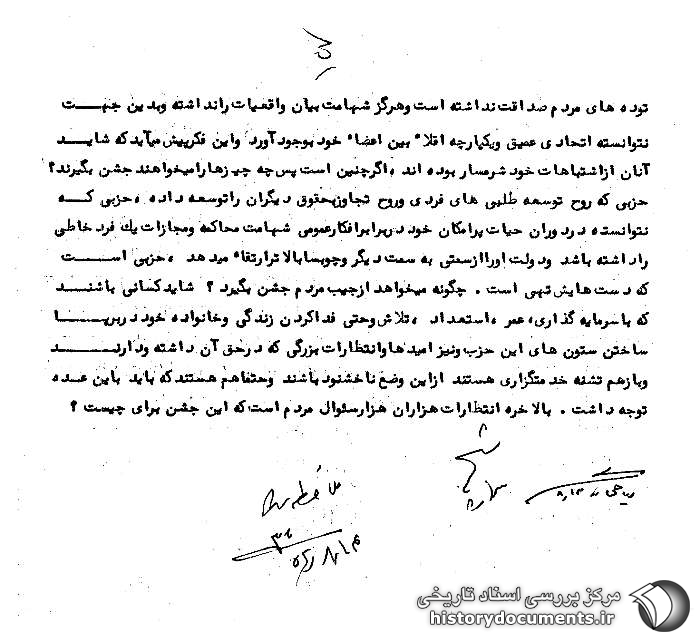 توده های مردم صداقت نداشته است وهرگز شهامت بیان واقعیات رانداشته وبدین جهت
نتوانسته اتحادی عمیق ویکپارچه اقلاً بین اعضاء خود بوجود آورد واین فکر پیش میآید که شاید
آنان از اشتباهات خود شرمسار بوده اند ، اگر چنین است پس چه چیزها را میخواهند جشن بگیرند ؟
حزبی که روح توسعه طلبی های فردی وروح تجاوز بحقوق دیگران را توسعه داده ، حزبی که
نتوانسته در دوران حیات پر امکان خود در برابر افکار عمومی شهامت محاکمه ومجازات یك فرد خاطی
را داشته باشد ودولت او را از سمتی به سمت دیگر وچوبسا بالا تر ارتقاء میدهد ، حزبی است
که دست هایش تهی است . چگونه میخواهد از جیب مردم جشن بگیرد ؟ شاید کسانی باشند
که با سرمایه گذاری ، عمر ، استعداد ، تلاش وحتی فدا کردن زندگی وخانواده خود در برپا
ساختن ستون های این حزب ونیز امیدها وانتظارات بزرگی که در حق آن داشته ودارند
وبازهم تشنه خدمتگزاری هستند از این وضع ناخشنود باشند وحتما هم هستند که باید باین عده
توجه داشت . بالاخره انتظارات هزاران هزار سئوال مردم است که این جشن برای چیست ؟
مرکز بررسی اسناد تاریخی
historydocuments.ir